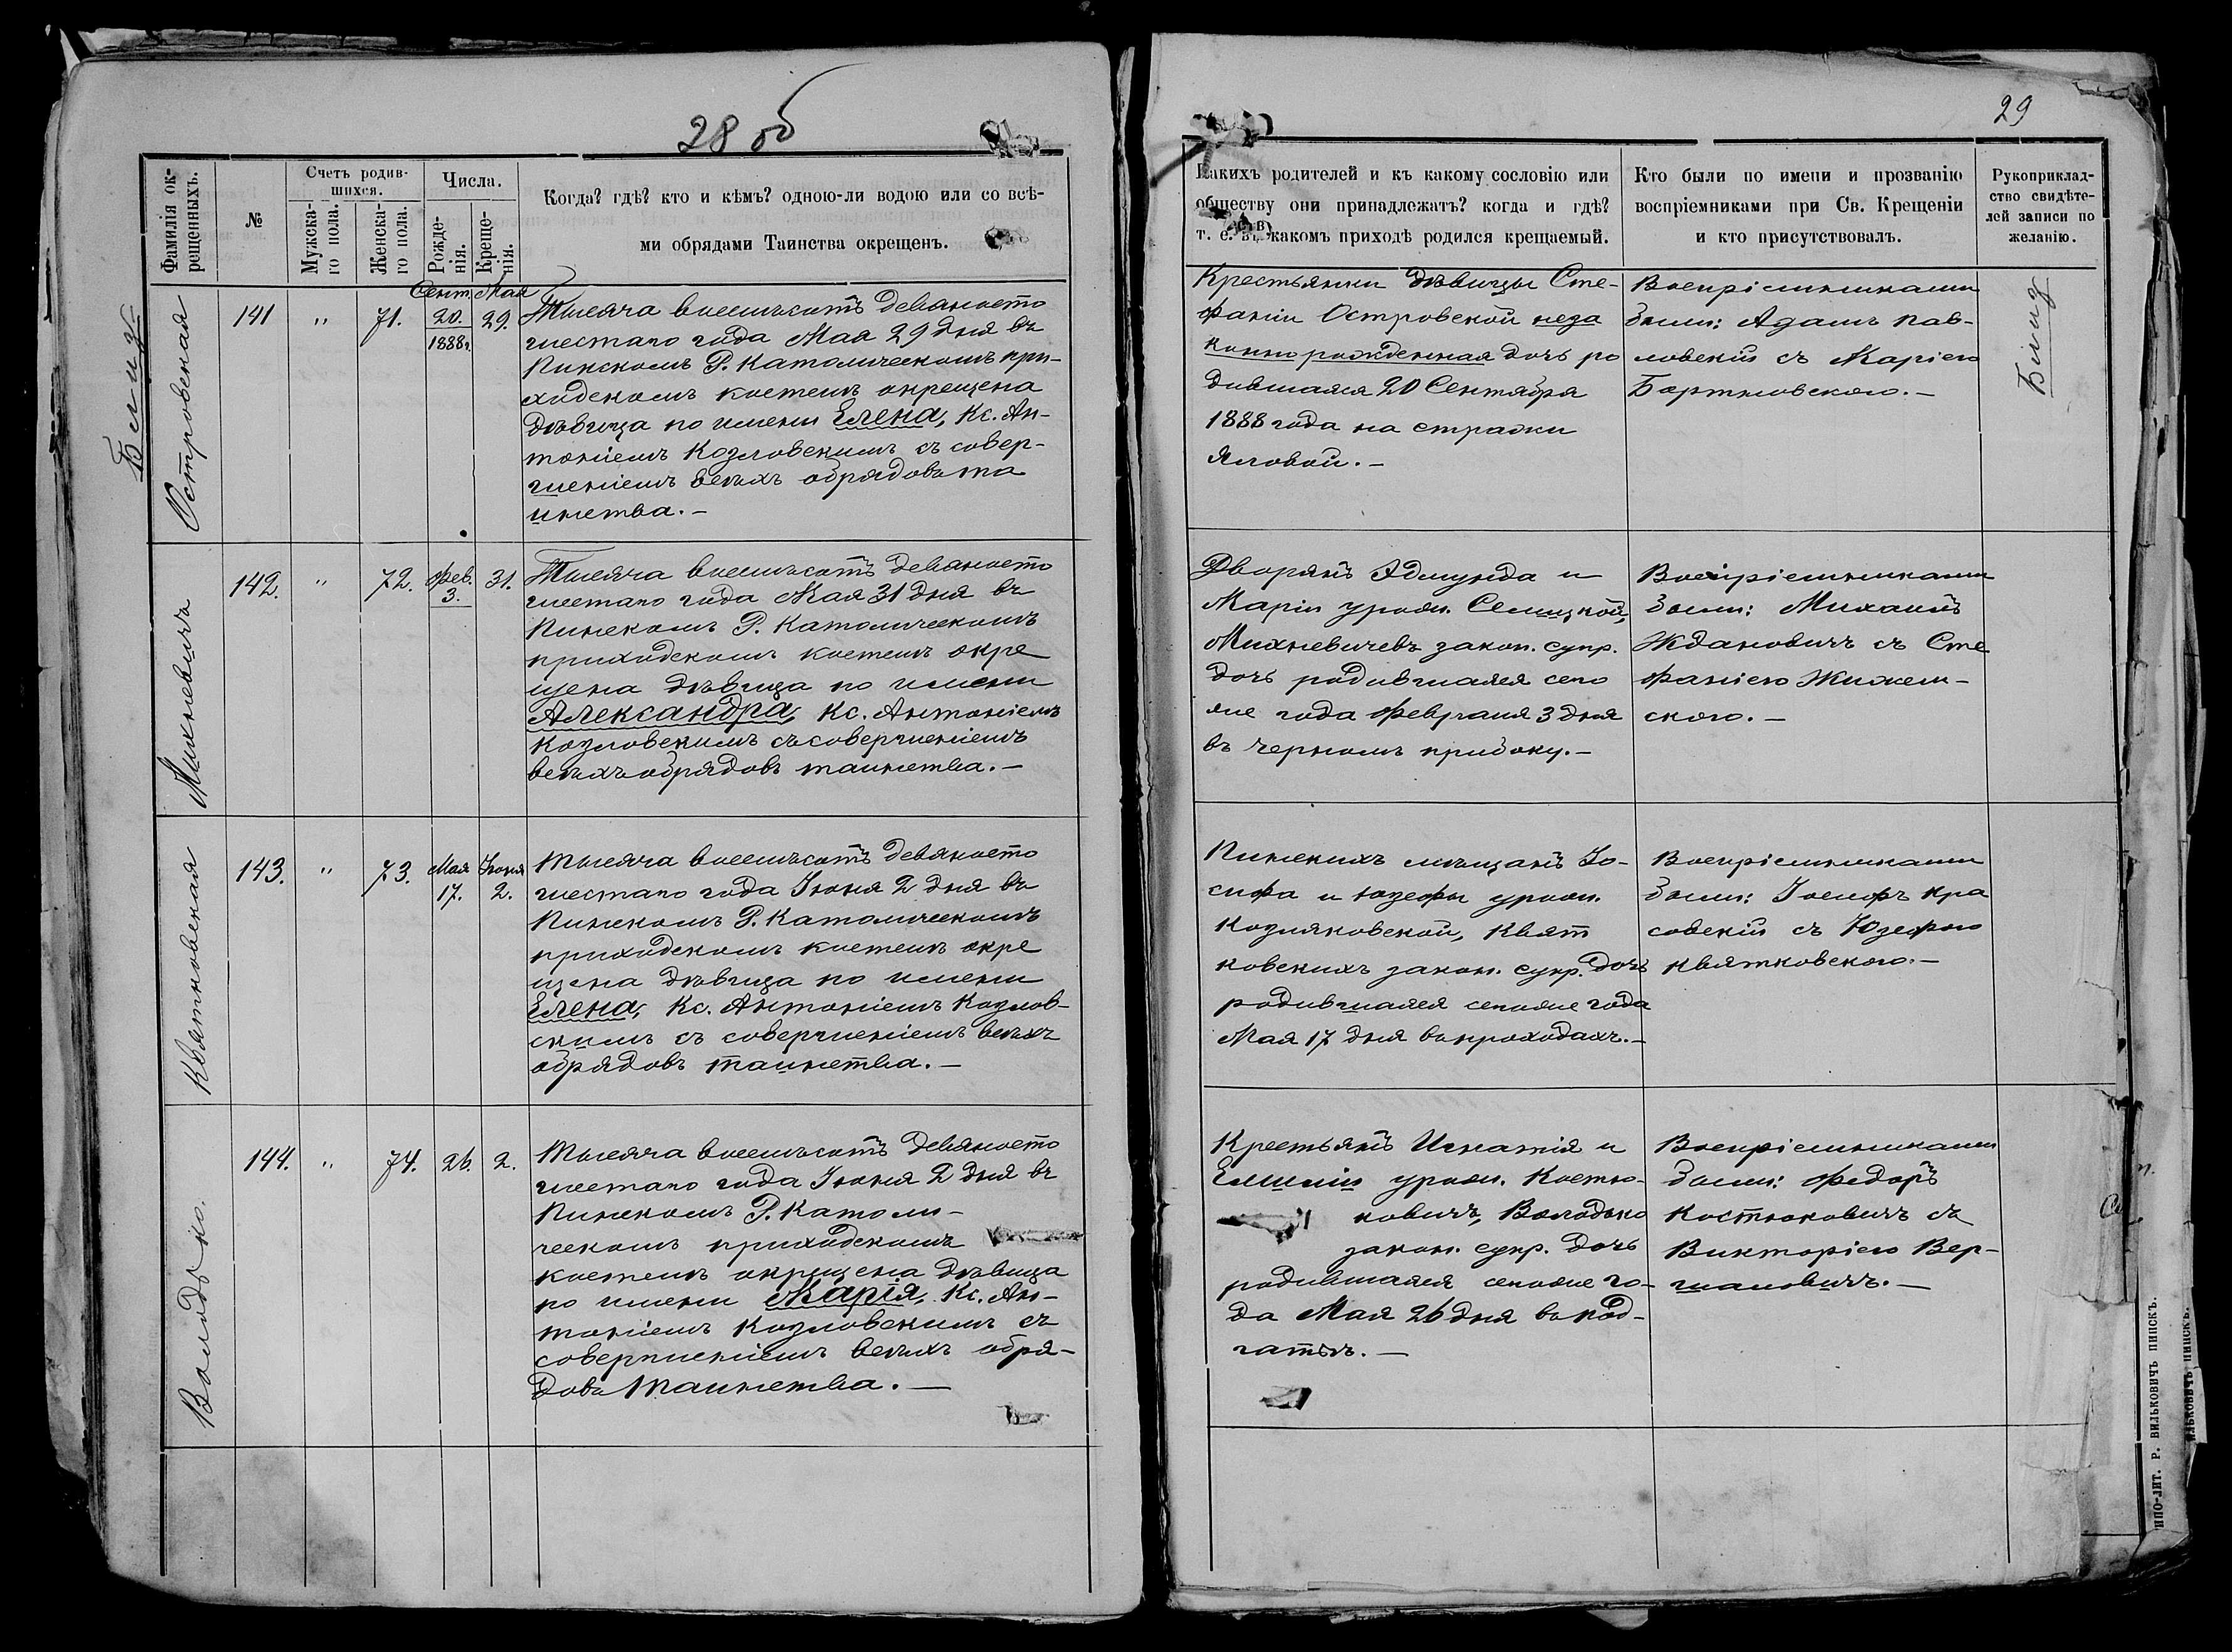 28 об
Фамилія ок-
рещенныхъ.
№
Счетъ родив-
шихся.
Мужска-
го пола.
Женска-
го пола.
Числа.
Рожде-
нія.
Креще-
нія.
Когда? гдѣ? кто и кѣмъ? одною-ли водою или со всѣ-
ми обрядами Таинства окрещенъ.
Близ.
Островская
141
"
71.
Сент.
20.
1888г.
Мая
29.
Тысяча восемьсотъ девяносто
шестаго года Мая 29 дня въ
Пинскомъ Р. Католическомъ при-
ходскомъ костелѣ окрещена
дѣвица по имени Елена, Кс. Ан-
тоніемъ Козловскимъ съ совер-
шеніемъ всѣхъ обрядовъ та
инства. –
Михневичъ
142.
"
72.
Фев.
3.
31.
Тысяча восемьсотъ девяносто
шестаго года Мая 31 дня въ
Пинскомъ Р. Католическомъ
приходскомъ костелѣ окре
щена дѣвица по имени
Александра, Кс. Антоніемъ
Козловскимъ съ совершеніемъ
всѣхъ обрядовъ таинства. –
Квятковская
143.
"
73.
Мая
17.
Іюня
2.
Тысяча восемьсотъ девяносто
шестаго года Іюня 2 дня въ
Пинскомъ Р. Католическомъ
приходскомъ костелѣ окре
щена дѣвица по имени
Елена, Кс. Антоніемъ Козлов-
скимъ съ совершеніемъ всѣхъ
обрядовъ таинства. –
Володько.
144.
"
74.
26.
2.
Тысяча восемьсотъ девяносто
шестаго года Іюня 2 дня въ
Пинскомъ Р. Католи-
ческомъ приходскомъ
костелѣ окрещена дѣвица
по имени Марія, Кс. Ан-
тоніемъ Козловскимъ съ
совершеніемъ всѣхъ обря-
довъ таинства. –
29
Какихъ родителей и къ какому сословію или
обществу они принадлежатъ? когда и гдѣ?
т. е. въ какомъ приходѣ родился крещаемый.
Кто были по имени и прозванію
воспріемниками при Св. Крещеніи
и кто присутствовалъ.
Рукоприклад-
ство свидѣте-
лей записи по
желанію.
Крестьянки дѣвицы Сте-
фаніи Островской неза
конно рожденная дочь ро
дившаяся 20 Сентября
1888 года на стражи
Яловой. –
Воспріемниками
были: Адамъ Пав-
ловскій съ Маріею
Бортновскою. –
Близ
Дворянъ Эдмунда и
Маріи урожд. Селицкой,
Михневичевъ закон. супр.
дочь родившаяся сего
же года Февраля 3 дня
въ Черномъ прибоку. –
Воспріемниками
были: Михаилъ
Ждановичъ съ Сте
фаніею Жилин-
скою. –
Пинскихъ мѣщанъ Іо-
сифа и Юзефы урожд.
Козляковской, Квят
ковскихъ закон. супр. дочь
родившаяся сегоже года
Мая 17 дня въ проходахъ. –
Воспріемниками
были: Іосифъ Кра
совскій съ Юзефою
Квятковскою. –
Крестьянъ Игнатія и
Емиліи урожд. Костю-
ковичъ, Володько
закон. супр. дочь
родившаяся сегоже го-
да Мая 26 дня въ Под-
гатьѣ. –
Воспріемниками
были: Федоръ
Костюковичъ съ
Викторіею Вер-
шаловичъ. –
ИПО-ЛИТ. Р. ВИЛЬКОВИЧЪ ПИНСКЪ.
ИЛЬКОВИЧЪ ПИНСКЪ.